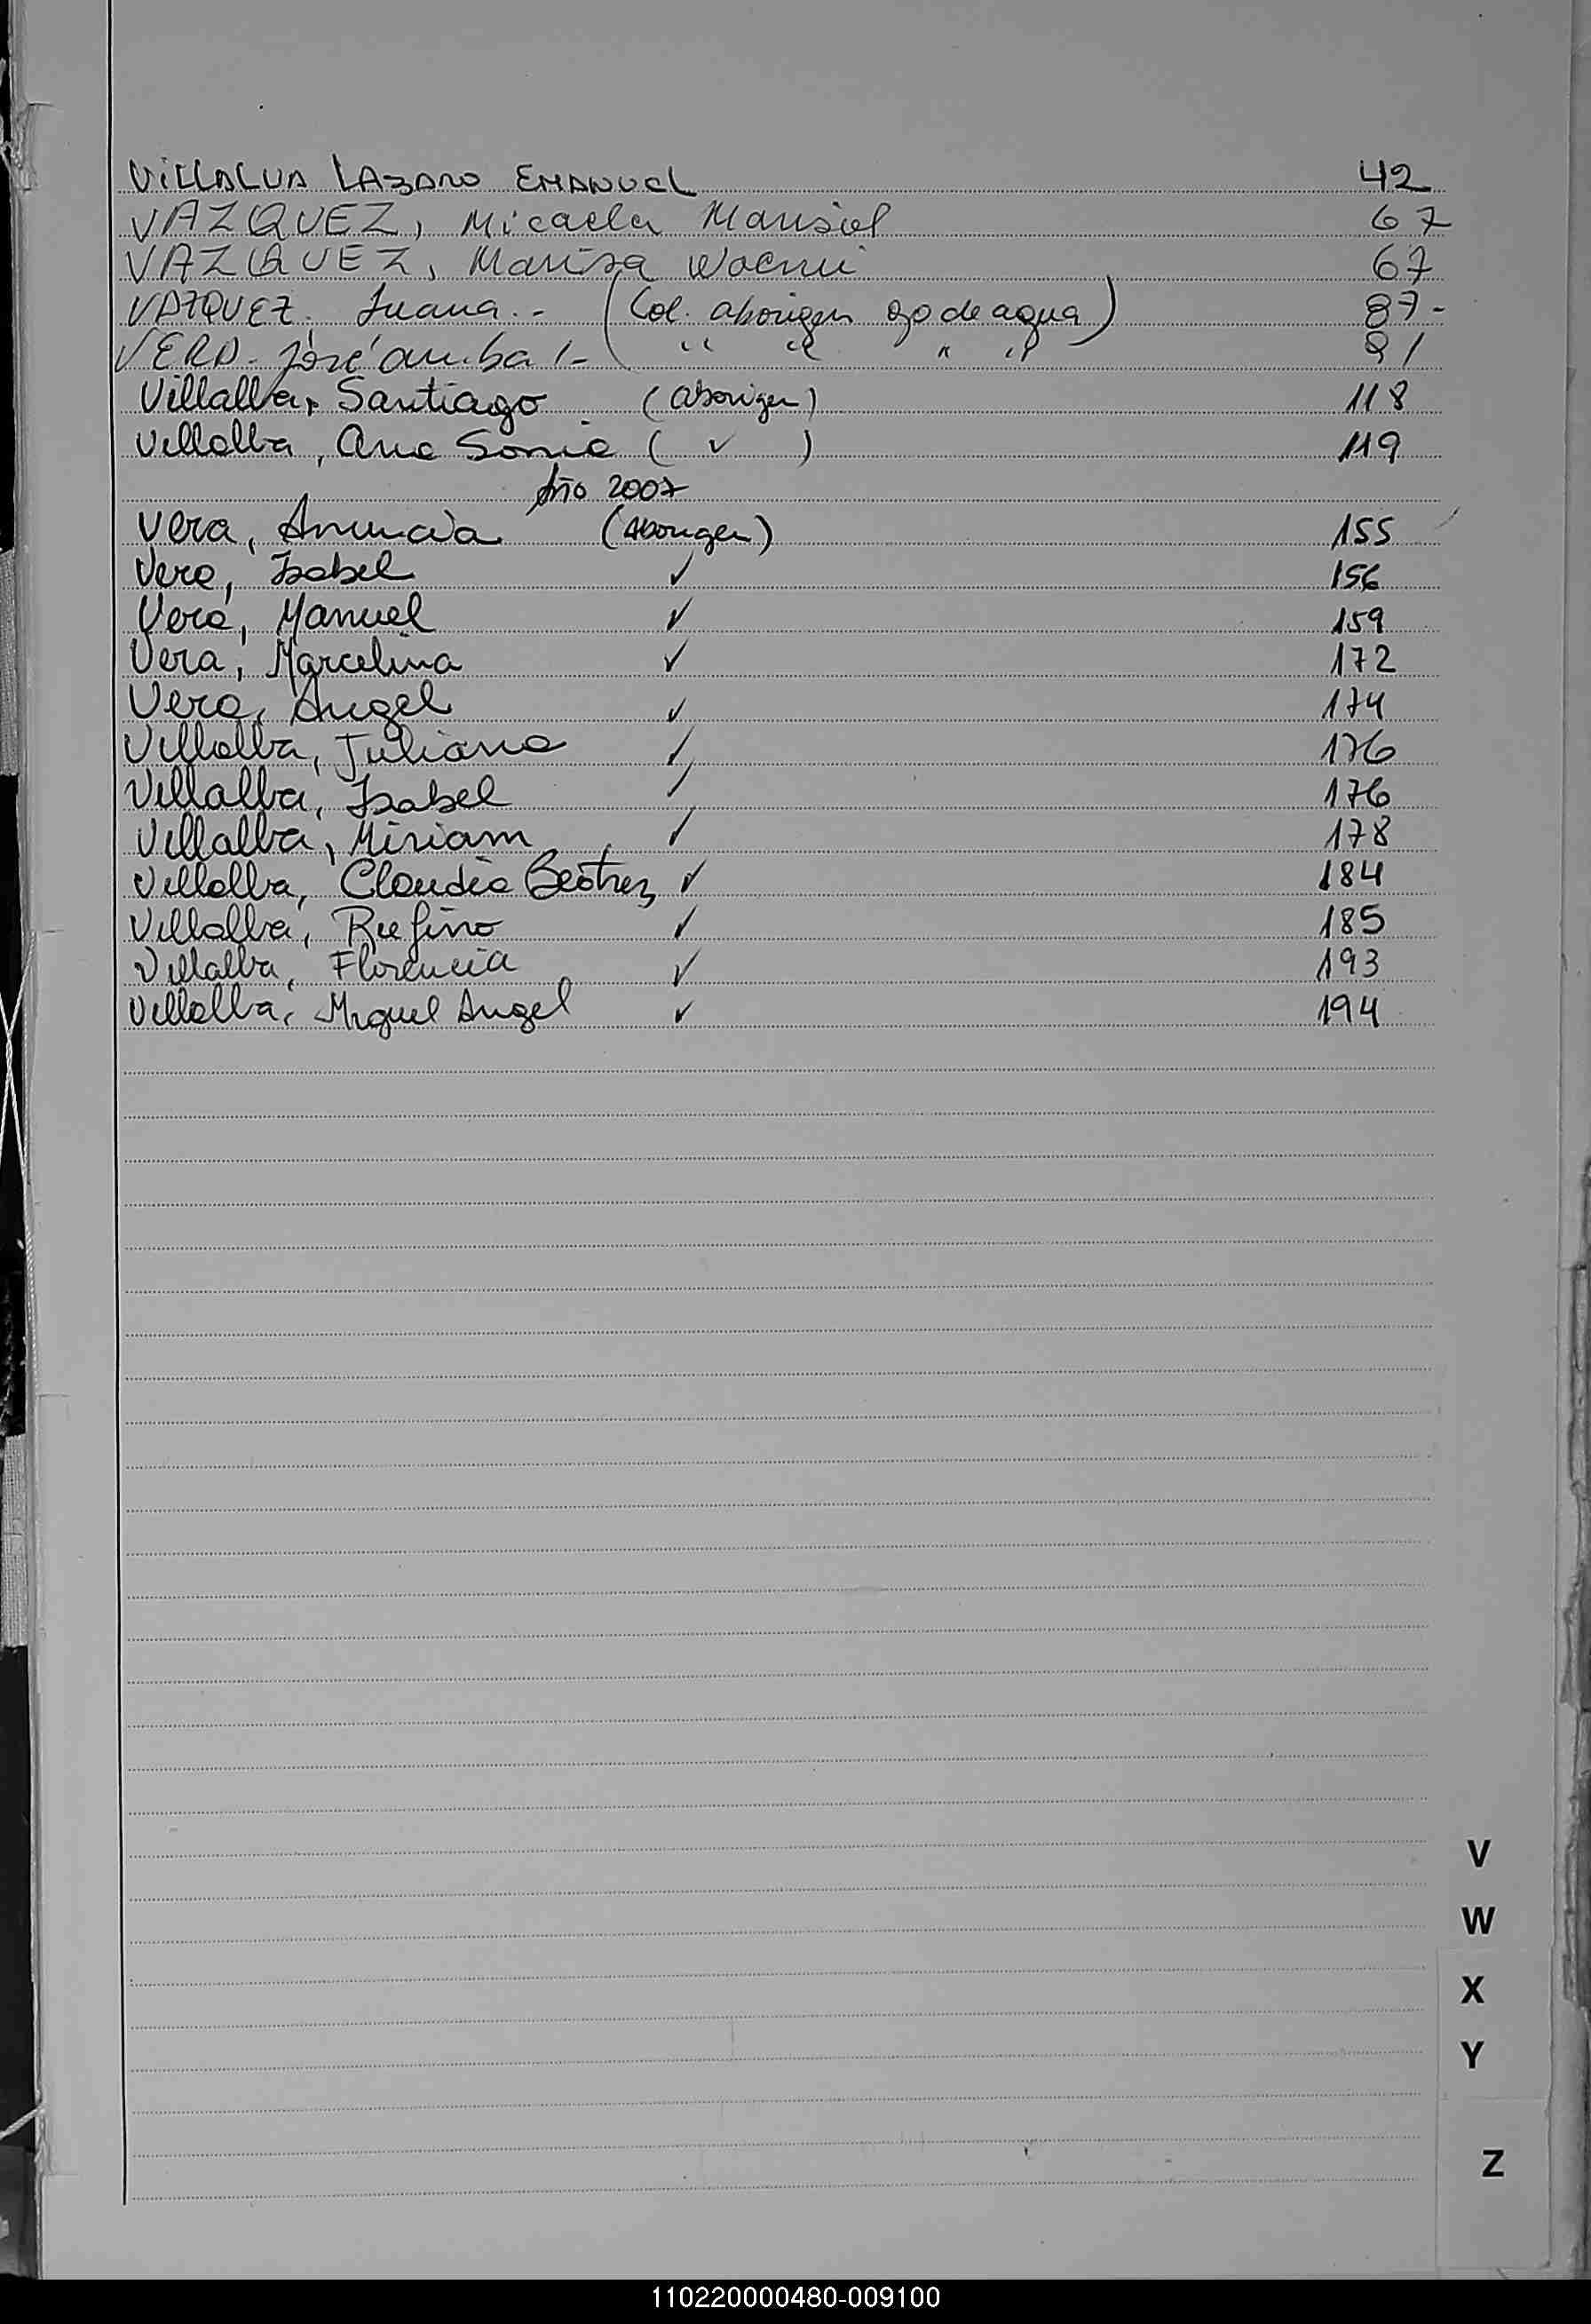 VILLALVA LAZARO EMANUEL 42
VAZQUEZ, Micaela Marisol 67
VAZQUEZ, Marisa Noemi 67
VAZQUEZ, Juana.- (Col. aborigen ojo de agua) 87-
VERA- José anibal.- ( " " " " 91
Villalba, Santiago (aborigen) 118
Villalba, Ana Sonia ( ✓ ) 119
Año 2007
Vera, Anuncia (Aborigen) 155
Vera, Isabel ✓ 156
Vera, Manuel ✓ 159
Vera, Marcelina ✓ 172
Vera, Angel ✓ 174
Villalba, Juliana ✓ 176
Villalba, Isabel ✓ 176
Villalba, Miriam ✓ 178
Villalba, Claudia Beatriz ✓ 184
Villalba, Rufino ✓ 185
Villalba, Florencia ✓ 193
Villalba, Miguel Angel ✓ 194
V
W
X
Y
Z
110220000480-009100